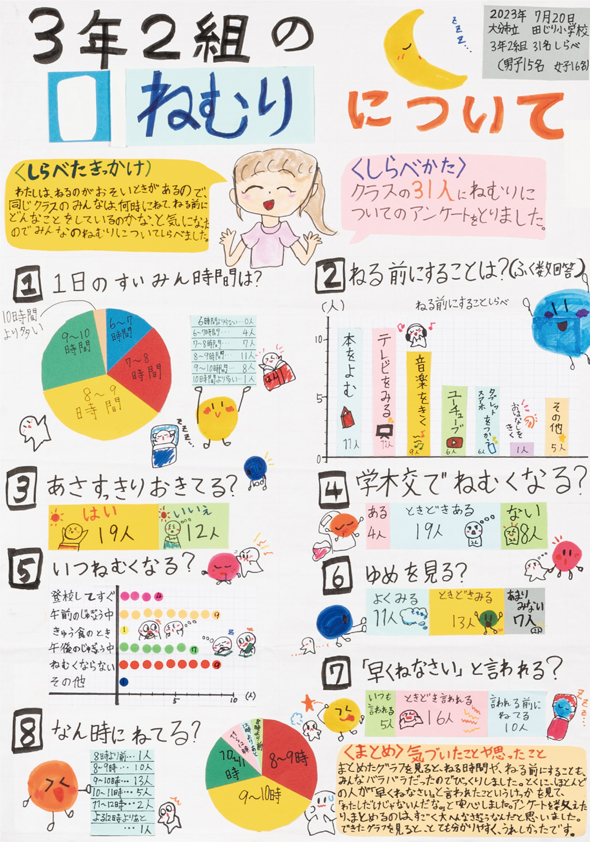 3年2組の
ねむり
について
zzz...
2023年 7月20日
大分市立 田じり小学校
3年2組 31名しらべ
(男子15名 女子16名)
〈しらべたきっかけ〉
わたしは、ねるのがおそいときがあるので、
同じクラスのみんなは、何時にねて、ねる前に
どんなことをしているのかな、と気になった
のでみんなのねむりについてしらべました。
〈しらべかた〉
クラスの31人にねむりに
ついてのアンケートをとりました。
1 1日のすいみん時間は?
10時間
より多い
6~7
時間
7~8
時間
8~9
時間
9~10
時間
6時間より少ない…0人
6~7時間 4人
7~8時間 7人
8~9時間 11人
9~10時間 8人
10時間より多い 1人
zzz...
2 ねる前にすることは?(ふく数回答)
(人)
ねる前にすることしらべ
10
5
0
本をよむ
11人
テレビをみる
11人
音楽をきく
9人
ユーチューブ
6人
スマホ
タブレット
をつかう
6人
おはなしを
きく
1人
その他
5人
3 あさすっきりおきてる?
はい
19人
いいえ
12人
4 学校でねむくなる?
ある
4人
ときどきある
19人
ない
8人
5 いつねむくなる?
登校してすぐ
午前のじゅぎょう中
きゅう食のとき
午後のじゅぎょう中
ねむくならない
その他
0
5
10
(人)
6 ゆめを見る?
よくみる
11人
ときどきみる
13人
あまり
みない
7人
7 「早くねなさい」と言われる?
いつも
言われる
5人
ときどき言われる
16人
言われる前に
ねてる
10人
8 なん時にねてる?
8時より前…1人
8~9時…10人
9~10時…13人
10~11時…5人
11~12時…2人
よる12時よりあと
…1人
8~9時
9~10時
10~11
時
〈まとめ〉気づいたことや思ったこと
まとめたグラフを見ると、ねる時間や、ねる前にすることも、
みんなバラバラだったのでびっくりしました。とくに、ほとんど
の人が「早くねなさい」と言われたことというけっかを見て
「わたしだけじゃないんだなぁ」と安心しました。アンケートを考えた
り、まとめるのは、すごく大へんなさぎょうなんだと思いました。
できたグラフを見ると、とても分かりやすく、うれしかったです。